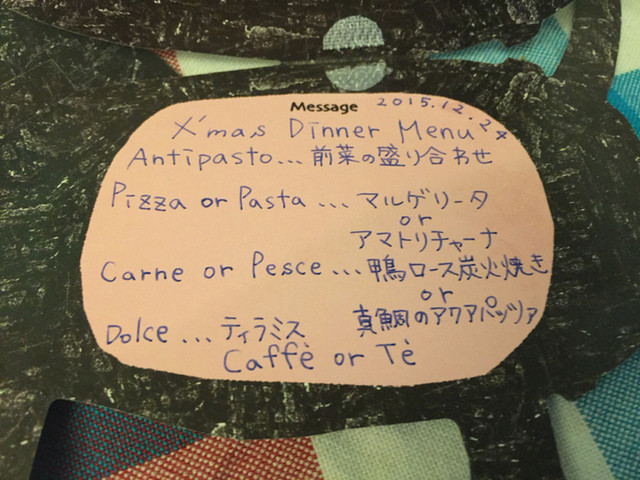 Message 2015.12.24
X'mas Dinner Menu
Antipasto... 前菜の盛り合わせ
Pizza or Pasta ... マルゲリータ
or
アマトリチャーナ
Carne or Pesce ... 鴨ロース炭火焼き
or
真鯛のアクアパッツァ
Dolce ... ティラミス
Caffè or Tè